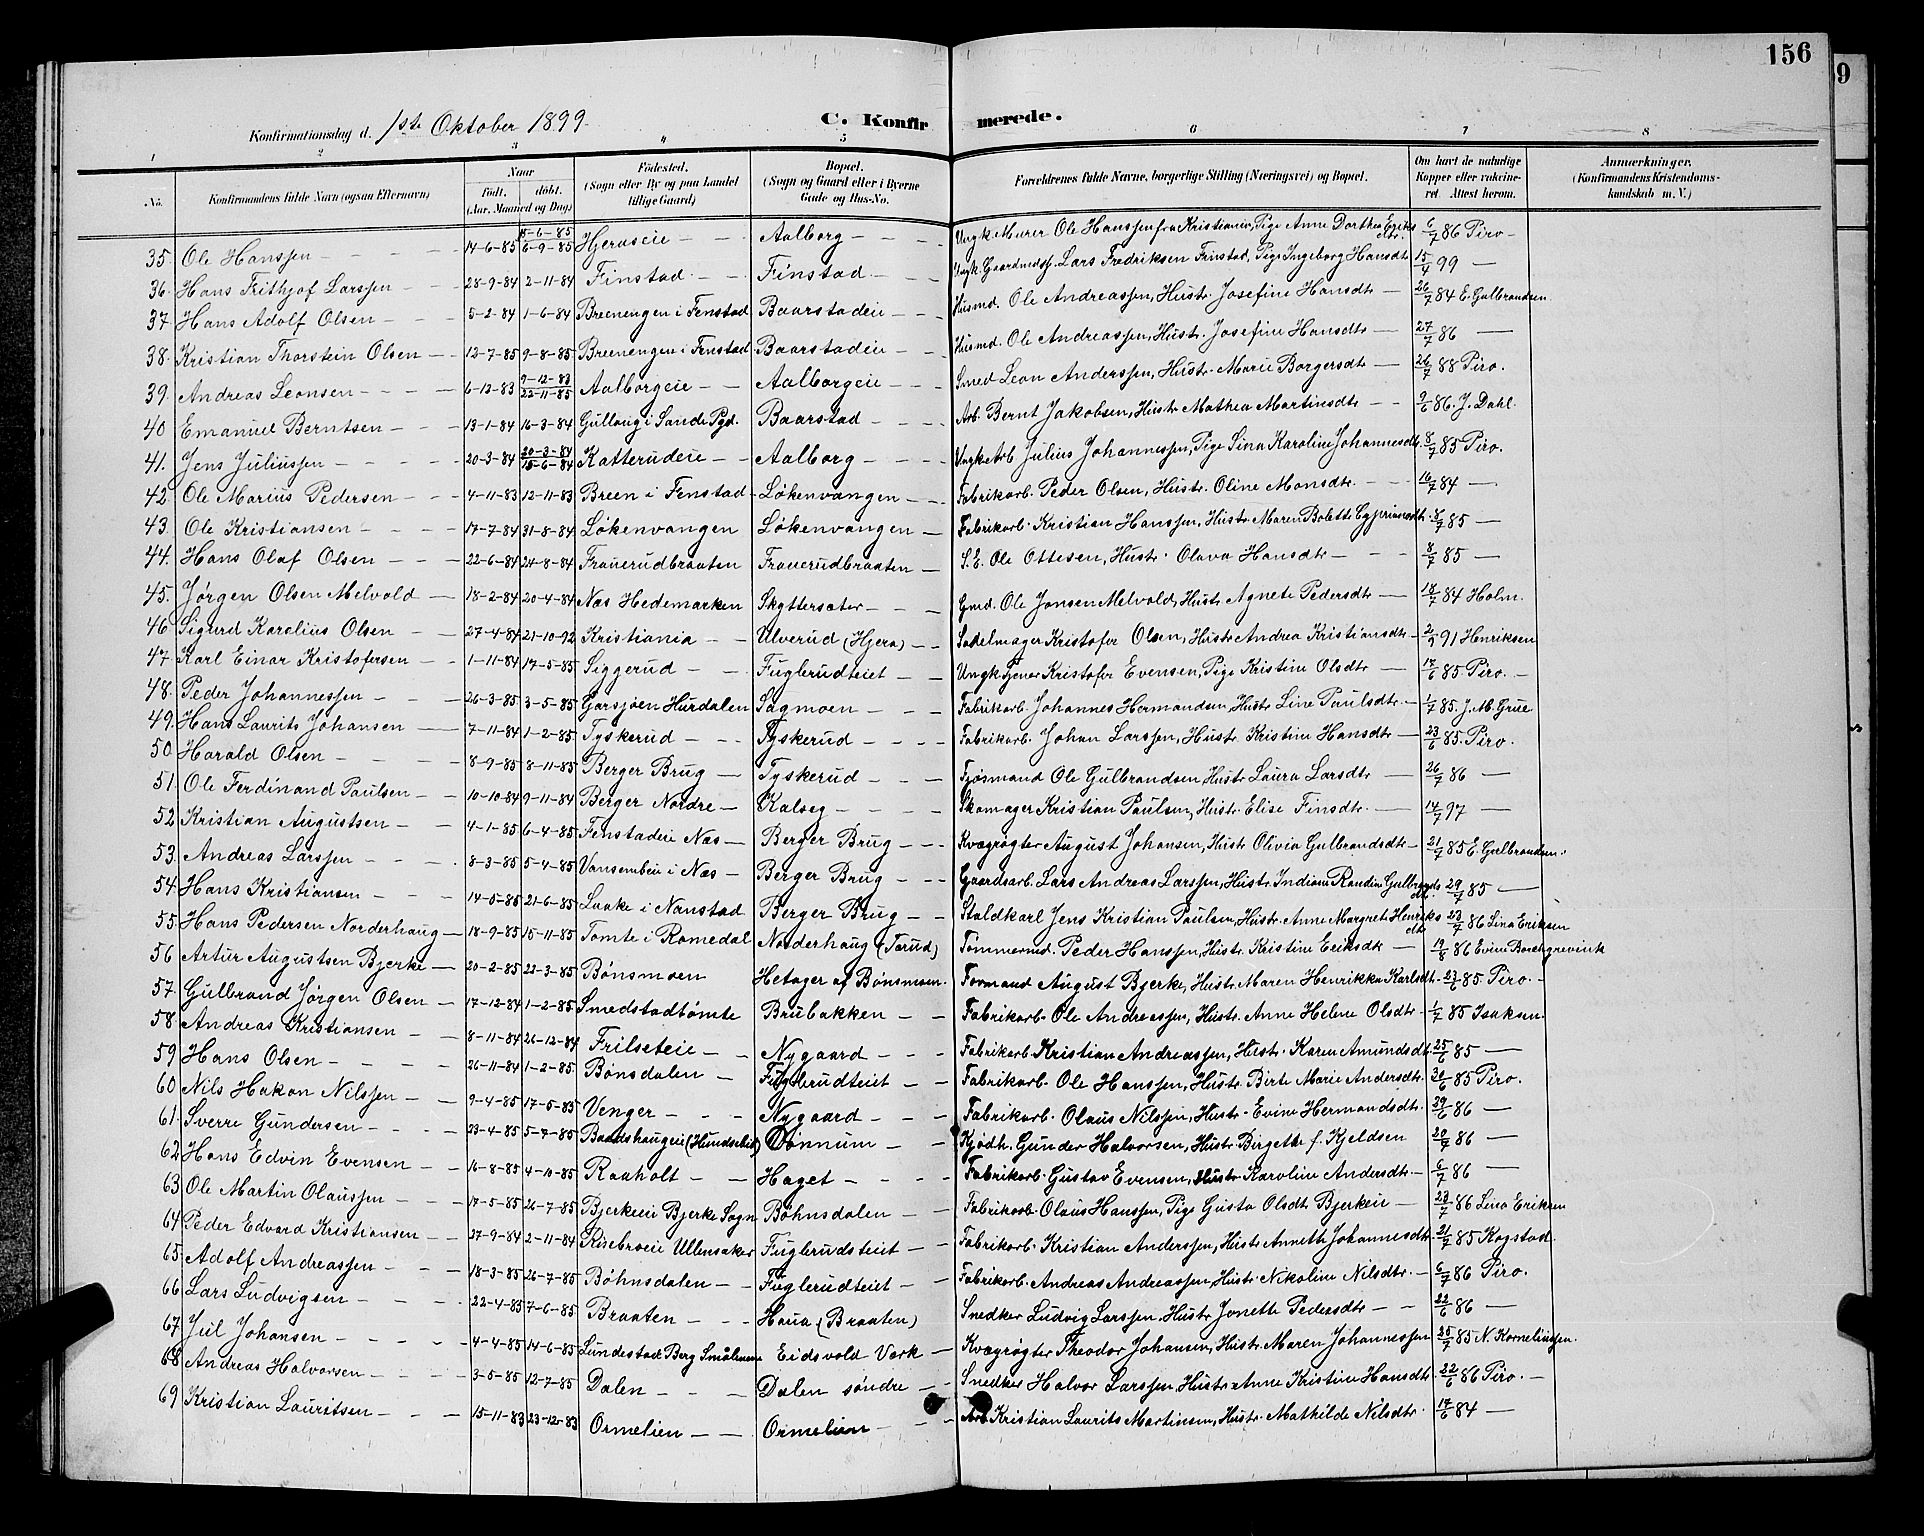 156
9
Konfirmationsdag d. 1ste Oktober 1899.
C. Konfirmerede.
1 2 3 4 5 6 7 8
No. Konfirmandens fulde Navn (ogsaa Efternavn) Naar Født. døbt. (Aar, Maaned og Dag) Födested. (Sogn eller By og paa Landet tillige Gaard) Bopæl. (Sogn og Gaard eller i Byerne Gade og Hus-No. Forældrenes fulde Navne, borgerlige Stilling (Næringsvei) og Bopæl. Om havt de naturlige Kopper eller vakcineret. Attest herom. Anmærkninger. (Konfirmandens Kristendomskundskab m. V.)
35. Ole Hanssen 14-6-85 15-6-85 6-9-85 Hjeraseie Aalborg Ungk. Murer Ole Hanssen fra Kristiania, Pige Anne Dorthea Eriksdtr. 6/7 86 Piro
36. Hans Frithjof Larssen 28-9-84 2-11-84 Finstad Finstad Ungk. Gaardmdss. Lars Fredriksen Finstad, Pige Ingeborg Hansdtr 15/4 99 —
37 Hans Adolf Olsen 5-2-84 1-6-84 Breenengen i Fenstad Baarstadeie Husmd. Ole Andreassen, Hustr. Josefine Hansdtr 26/7 84 E. Gulbrandsen
38. Kristian Thorstein Olsen 12-7-85 9-8-85 Breenengen i Fenstad Baarstadeie Husmd. Ole Andreassen, Hustr. Josefine Hansdtr 27/7 86 —
39. Andreas Leonsen 6-12-83 9-12-83 22-11-85 Aalborgeie Aalborgeie Smed Leon Anderssen, Hustr. Marie Borgersdtr 26/7 88 Piro.
40 Emanuel Berntsen 13-1-84 16-3-84 Gullaug i Sande Pgd. Baarstad Arb. Bernt Jakobsen, Hustr Mathea Martinsdtr 9/6 86. J. Dahl.
41. Jens Juliussen 20-3-84 20-3-84 15-6-84 Katterudeie Aalborg Ungk. Arb. Julius Johannessen, Pige Lina Karoline Johannesdtr. 8/7 85 Piro.
42. Ole Marius Pedersen 4-11-83 12-11-83 Breen i Fenstad Løkenvangen Fabrikarb. Peder Olsen, Hustr. Oline Monsdtr. 16/7 84 —
43. Ole Kristiansen 17-7-84 31-8-84 Løkenvangen Løkenvangen Fabrikarb. Kristian Hanssen, Hustr Maren Bolette Cypriansdtr. 8/7 85 —
44. Hans Olaf Olsen 22-6-84 24-8-84 Frauerudbraaten Frauerudbraaten S. E. Ole Ottesen, Hustr. Olava Hansdtr 8/7 85 —
45. Jørgen Olsen Melvold 18-2-84 20-4-84 Næs Hedemarken Skyttersæter Gmd. Ole Jonsen Melvold, Hustr Agnete Pedersdtr 18/7 84 Holm.
46 Sigurd Karelius Olsen 27-4-84 21-10-92 Kristiania Ulverud (Hjera) Sadelmager Kristofer Olsen, Hustr Andrea Kristiansdtr 2/9 91 Henriksen
47. Karl Einar Kristofersen 1-11-84 17-5-85 Siggerud Fuglerudteiet Ungk. Tjener Kristofer Evensen, Pige Kristine Olsdtr 17/6 85 Piro.
48. Peder Johannessen 26-3-85 3-5-85 Garsjøen Hurdalen Sagmoen Fabrikarb. Johannes Hermandsen, Hustr Line Paulsdtr. 1/7 85. J. M. Grue
49. Hans Laurits Johansen 7-11-84 1-2-85 Tyskerud Tyskerud Fabrikarb. Johan Larssen, Hustr Kristine Hansdtr 23/6 85 Piro.
50. Harald Olsen 8-9-85 8-11-85 Berger Brug Tyskerud Fjøsmand Ole Gulbrandsen, Hustr Laura Larsdtr 26/7 86 —
51. Ole Ferdinand Paulsen 10-10-84 9-11-84 Berger Nordre Kalseg Skomager Kristian Paulsen, Hustr. Elise Finsdtr. 14/7 97 —
52 Kristian Augustsen 4-1-85 6-4-85 Fenstadeie Næs Berger Brug Kvægrøgter August Johansen, Hustr Olivia Gulbrandsdtr 21/7 85 E. Gulbrandsen.
53. Andreas Larssen 8-3-85 5-4-85 Vansembeie i Næs Berger Brug Gaardsarb. Lars Andreas Larssen, Hustr. Indiane Randine Gulbrandsdtr. 29/7 85 —
54. Hans Kristiansen 14-5-85 21-6-85 Laake i Nanstad Berger Brug Staldkarl Jens Kristian Paulsen, Hustr. Anne Margrete Henriksdtr. 23/7 86 Lina Eriksen
55. Hans Pedersen Norderhaug 18-9-85 15-11-85 Tomte i Romedal Norderhaug (Tærud) Tømmermd. Peder Hanssen, Hustr. Kristine Eriksdtr 19/8 86 Evine Borchgrevink
56 Artur Augustsen Bjerke 20-2-85 22-3-85 Bønsmoen Hetager af Bønsmoen. Formand August Bjerke, Hustr. Maren Henrikke Karlsdtr. 23/6 85. Piro.
57. Gulbrand Jørgen Olsen 17-12-84 1-2-85 Smedstadtømte Brubakken Fabrikarb. Ole Andreassen, Hustr. Anne Helene Olsdtr 1/7 85 Isaksen.
58. Andreas Kristiansen 8-11-84 26-12-84 Frilseteie Nygaard Fabrikarb. Kristian Andreassen, Hustr. Karen Amundsdtr. 25/6 85 —
59 Hans Olsen 26-11-84 1-2-85 Bønsdalen Fuglerudteiet Fabrikarb. Ole Hanssen, Hustr. Birte Marie Andersdtr. 30/6 85 Piro.
60 Nils Hakon Nilssen 9-4-85 17-5-85 Venger Nygaard Fabrikarb. Olaus Nilssen, Hustr. Evine Hermandsdtr. 29/6 86 —
61. Sverre Gundersen 23-4-85 5-7-85 Baadshaugeie (Hundseleid) Dønnum Kjødh. Gunder Halvorsen, Hustr. Birgette f. Kjeldsen 20/7 86 —
62 Hans Edvin Evensen 16-8-85 4-10-85 Raaholt Haget Fabrikarb. Gustav Evensen, Hustr Karoline Andersdtr. 6/7 86 —
63. Ole Martin Olaussen 17-5-85 26-7-85 Bjerkeeie Bjerke Sogn Bøhnsdalen Fabrikarb. Olaus Hanssen, Pige Gusta Olsdtr. Bjerkeie 23/7 86 Lina Eriksen
64 Peder Edvard Kristiansen 27-9-84 2-11-84 Risebroeie Ullensaker Fuglerudsteiet Fabrikarb. Kristian Anderssen, Hustr Annette Johannesdtr. 21/7 85 Kogstad.
65. Adolf Andreassen 18-3-85 26-7-85 Bøhnsdalen Fuglerudteiet Fabrikarb. Andreas Andreassen, Hustr. Nikoline Nilsdtr. 6/7 86 Piro.
66 Lars Ludvigsen 22-4-85 7-6-85 Braaten Haua (Braaten) Snedker Ludvig Larssen, Hustr Jonette Pedersdtr 22/6 86 —
67 Juel Johansen 4-4-85 14-6-85 Lundestad Berg Smålenene Eidsvold Værk Kvægrøgter Theodor Johansen, Hustr. Maren Johannessen 25/7 85 N. Korneliussen.
68 Andreas Halvorsen 3-5-85 12-7-85 Dalen Dalen søndre Snedker Halvor Larssen, Hustr. Anne Kristine Hansdtr 22/6 86 Piro.
69 Kristian Lauritsen 15-11-83 23-12-83 Ormelien Ormelien Arb. Kristian Laurits Martinsen, Hustr. Mathilde Nilsdtr. 17/6 84 —